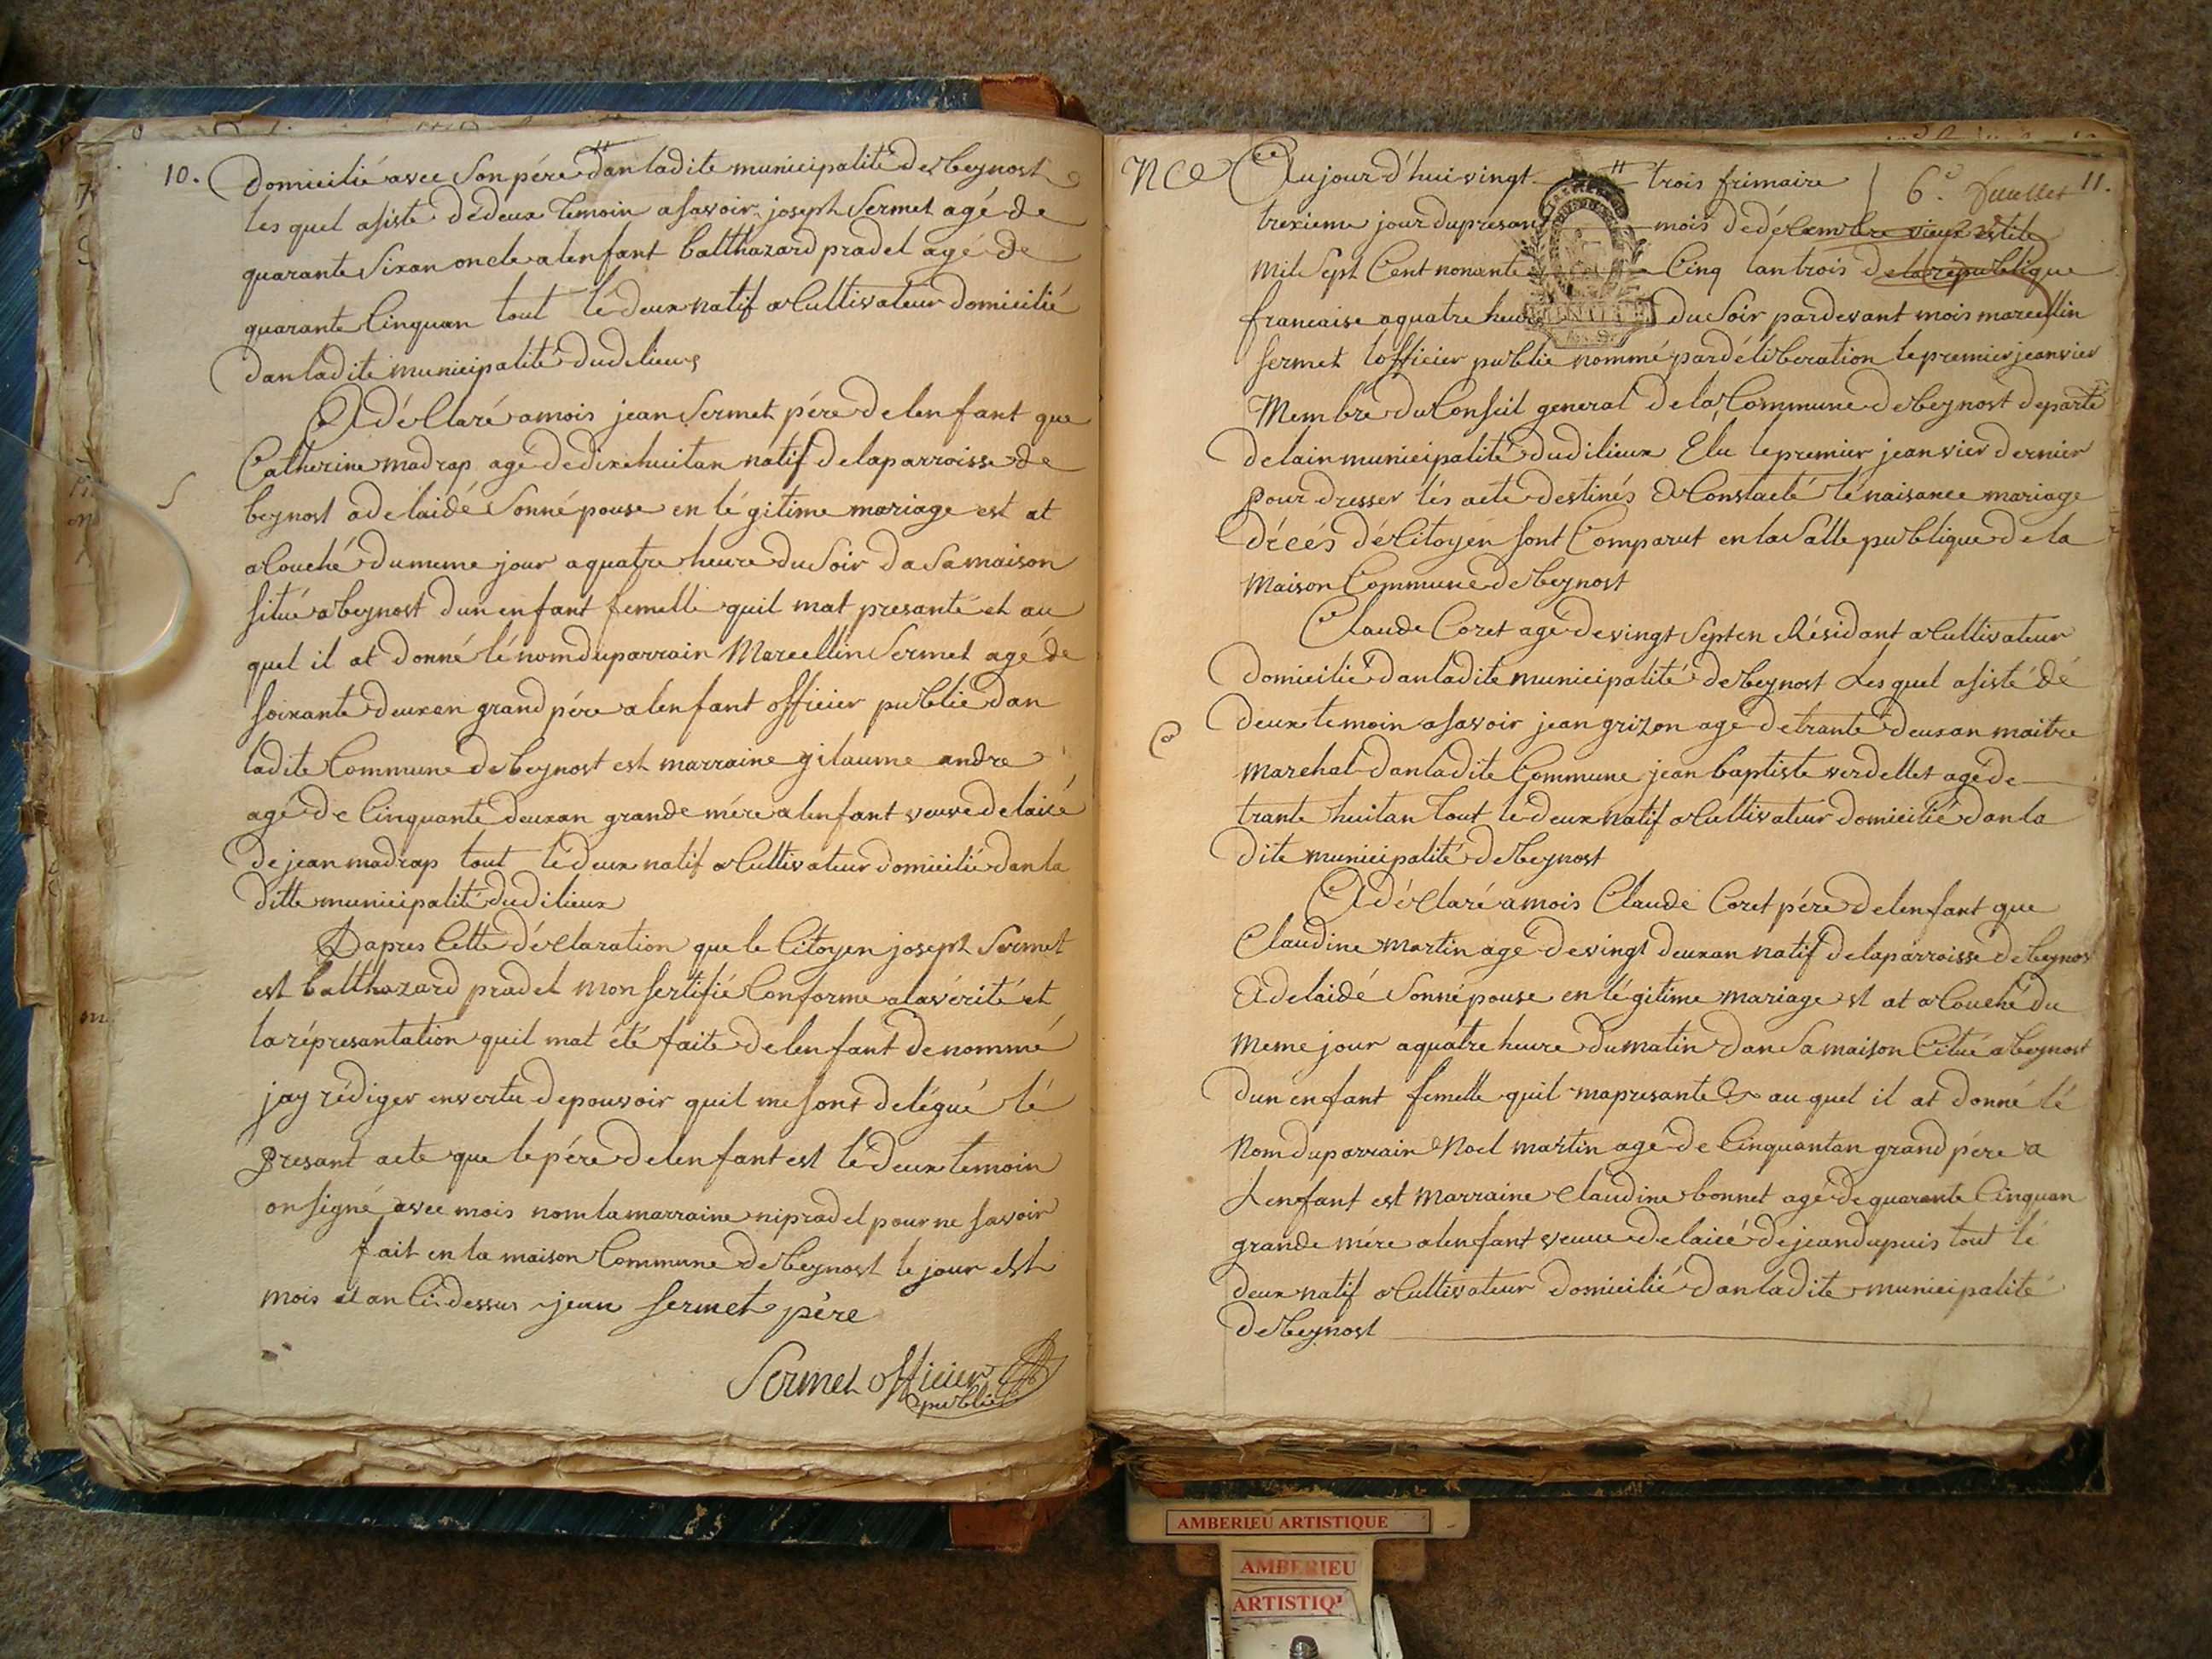 10.
domicilié avec Son pére dan ladite municipalité de beynost
les quel asisté dédeux temoin asavoir joseph Sermet agé de
quarante Sixan oncle alenfant balthazard pradel agé de
quarante Cinquan tout lé deux natif aCultivateur domicilié
dan ladite municipalité dudelieux
A déClaré amois jean Sermet pére delenfant que
Catherine madrap agé de dixehuitan natif delaparroisse de
beynost adélaidé Sonnépouse en légitime mariage est at
aCouché dumeme jour aquatre heure duSoir da Samaison
Situé abeynost dun enfant femelle quil mat presanté et au
quel il at donné lé nom duparrain Marcellin Sermet agé de
Soixante deuxan grand pére alenfant officier publie dan
ladite Commune de beynost est marraine gilaume andre
agé de Cinquante deuxan grande mére alenfant veuve delaisé
de jean madrap tout lé deux natif aCultivateur domicilié danla
ditte municipalité dudilieux
Dapres Cette déClaration que le Citoyen joseph Sermet
est balthazard pradel mon Sertifié Conforme alavérité et
la répresantation quil mat été faite delenfant denommé
jay rédiger envertu depouvoir quil me sont delégué lé
presant acte que lepére delenfant est lé deux temoin
on signé avec mois nom lamarraine nipradel pour ne savoir
fait en la maison Commune de beynost le jour est
mois et an Ci dessus jean sermet père
Sermet officier
publie
S
NCO
Aujourd'hui vingt trois frimaire
6.e 11.
trexieme jour dupresant mois dedéCembre vieux estile
Mil Sept Cent nonante Cinq lan trois delarépublique
francaise aquatre heure duSoir pardevant mois marcellin
sermet lofficier publie nommé pardéliberation lepremier jeanvier
Membre duConseil general dela Commune de beynost departé
delain municipalité dudilieux Elu lepremier jeanvier dernier
pour dresser lés acte destinés aConstacté lénaisance mariage
décés déCitoyen sont Comparut enlaSalle publique de la
Maison Commune de beynost
Claude Coret agé devingt Septen Résidant aCultivateur
domicilié danladite municipalité de beynost Les quel asisté dé
deux temoin asavoir jean grizon agé detrante deuxan maitre
marehal danladite Commune jean baptiste verdellet agé de
trante huitan tout lé deux natif aCultivateur domicilié danla
dite municipalité de beynost
A déClaré amois Claude Coret pére delenfant que
Claudine martin agé devingt deuxan natif delaparroisse de beynos
Adelaidé Sonnépouse en légitime mariage st at aCouché du
meme jour aquatre heure dumatin dan Samaison Citué abeynost
dun enfant femelle quil mapresanté & auquel il at donné lé
Nom duparrain Noel martin agé de Cinquantan grand pére a
Lenfant est marraine Claudine bonnet agé de quarante Cinquan
grande mére alenfant veuve delaicé dejeandupuis tout lé
deux natif aCultivateur domicilié danladite municipalité
de beynost
AMBERIEU ARTISTIQUE
AMBERIEU
ARTISTIQ'